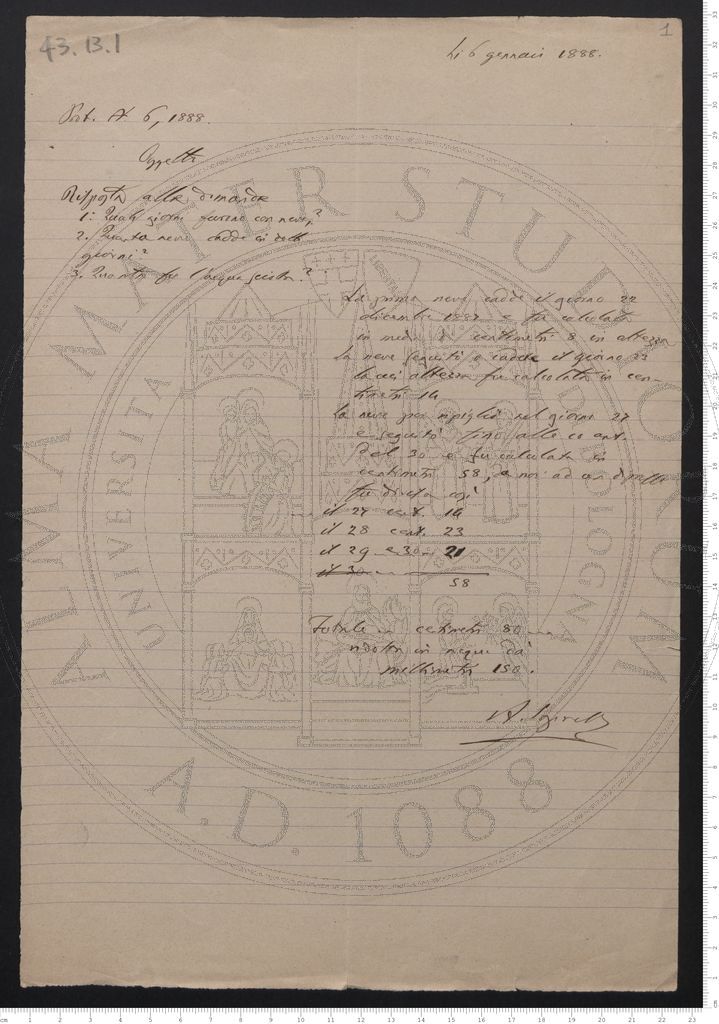 43.13.1
1
Li 6 gennaio 1888.
Prot. N 6, 1888.
Oggetto
Risposta alle domande
1. Quanti giorni furono con neve?
2. Quanta neve cadde in detti
giorni?
3. Quanta fu l'acqua sciolta?
La prima neve cadde il giorno 22
dicembre 1887 e fu calcolata
in media di centimetri 8 in altezza
La neve seguitò e cadde il giorno 23
la cui altezza fu calcolata in cen-
timetri 14
La neve poi ripigliò nel giorno 27
e seguitò fino alle 10 ant.
del 30 e fu calcolata in
centimetri 58, e
fu divisa così
il 27 cent. 14
il 28 cent. 23
il 29 e 30 21
il 30
58
Totale in centimetri 80
ridotta in acqua dà
millimetri 150.
ALMA MATER STUDIORUM
UNIVERSITÀ DI BOLOGNA
LIBERTAS
A.D. 1088